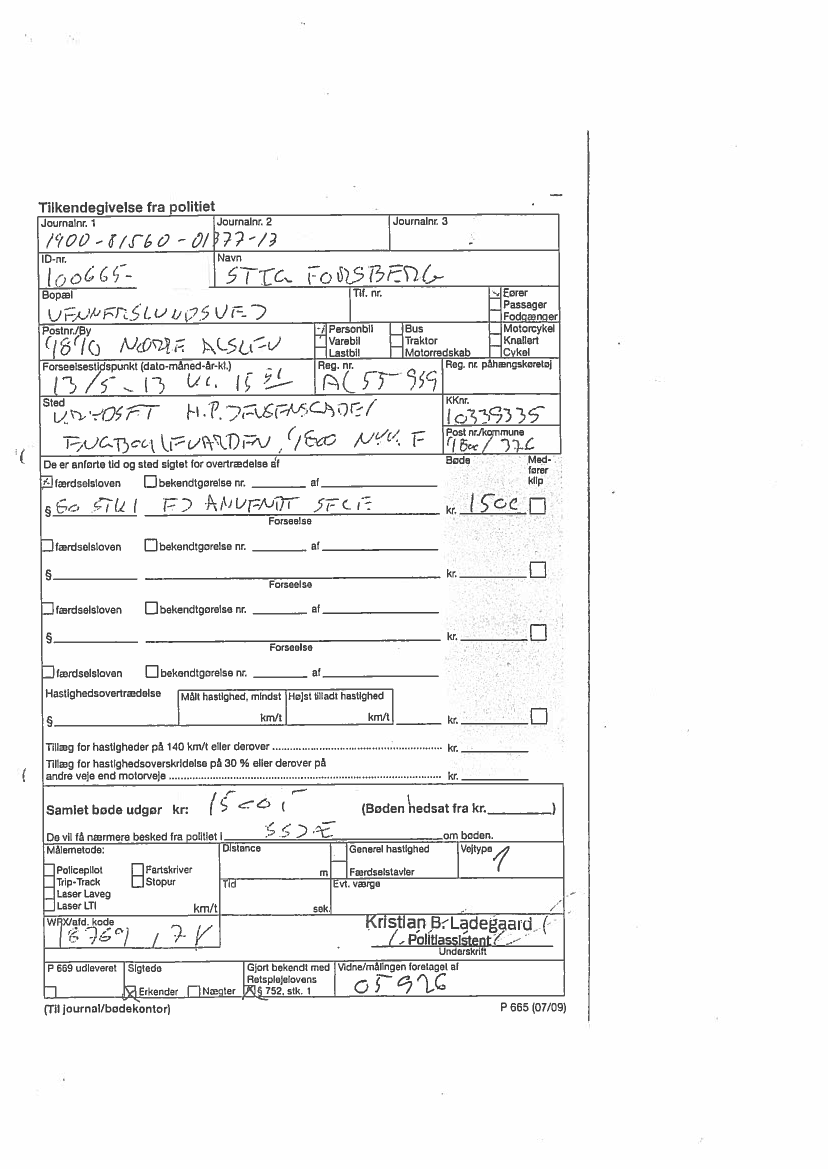 Tilkendegivelse fra politiet
Journalnr. 1 Journalnr. 2 Journalnr. 3
1900-81560-01377-13
ID-nr. Navn
100665- STIG FORSBERG
Bopæl Tlf. nr. Fører
Passager
Fodgænger
Postnr./By Personbil Bus Motorcykel
Varebil Traktor Knallert
Lastbil Motorredskab Cykel
NØRRE ALSLEV
Forseelsestidspunkt (dato-måned-år-kl.) Reg. nr. Reg. nr. påhængskøretøj
13/5-13 KL. 15 AC 55 959
Sted KKnr.
H.P. JENSENSGADE/ 10339335
Post nr./kommune
4800 NYK. F 4800/376
De er anførte tid og sted sigtet for overtrædelse af Bøde Med-
fører
klip
færdselsloven bekendtgørelse nr. af
§ 80 STK 1 ED ANVENDT SELE kr. 1500
Forseelse
færdselsloven bekendtgørelse nr. af
§ kr.
Forseelse
færdselsloven bekendtgørelse nr. af
§ kr.
Forseelse
færdselsloven bekendtgørelse nr. af
Hastighedsovertrædelse Målt hastighed, mindst Højst tilladt hastighed
§ km/t km/t kr.
Tillæg for hastigheder på 140 km/t eller derover kr.
Tillæg for hastighedsoverskridelse på 30 % eller derover på
andre veje end motorveje kr.
Samlet bøde udgør kr: 1500,- (Bøden nedsat fra kr. )
De vil få nærmere besked fra politiet i SSJÆ om bøden.
Målemetode: Distance Generel hastighed Vejtype 1
Policepilot Fartskriver m Færdselstavler
Trip-Track Stopur Tid Evt. værge
Laser Laveg
Laser LTI km/t sek.
WRX/afd. kode Kristian B. Ladegaard
Politiassistent
Underskrift
P 669 udleveret Sigtede Gjort bekendt med Vidne/målingen foretaget af
Retsplejelovens 05926
Erkender Nægter § 752, stk. 1
(Til journal/bødekontor) P 665 (07/09)